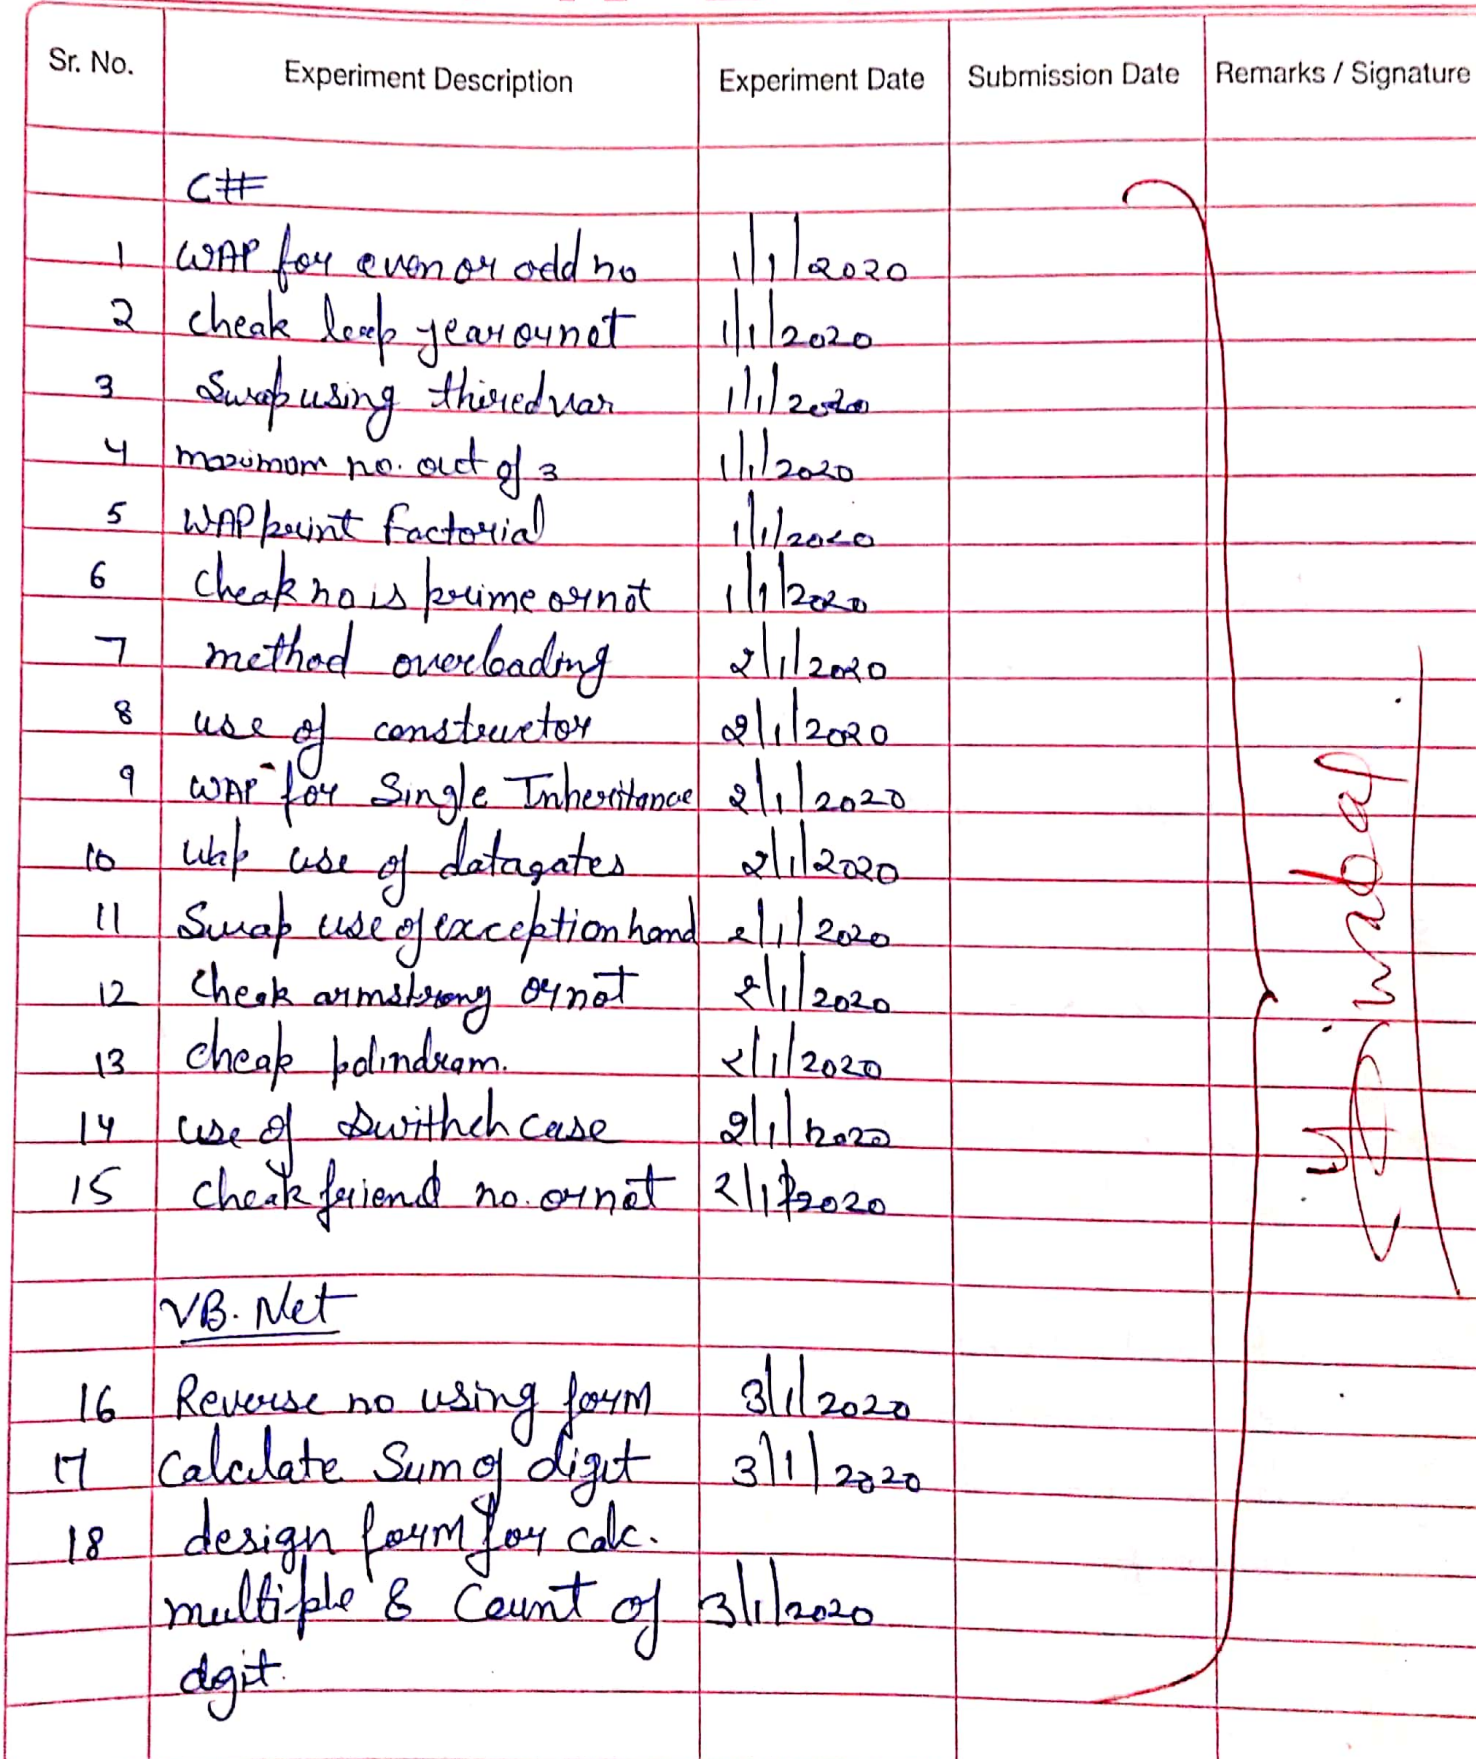 Sr. No. Experiment Description Experiment Date Submission Date Remarks / Signature
C#
1 WAP for even or odd no 1/1/2020
2 cheak leap year or not 1/1/2020
3 Swap using thired var 1/1/2020
4 maximum no. out of 3 1/1/2020
5 WAP print factorial 1/1/2020
6 cheak no is prime or not 1/1/2020
7 method overloading 2/1/2020
8 use of constructor 2/1/2020
9 WAP for Single Inheritance 2/1/2020
10 Wap use of datagates 2/1/2020
11 Swap use of exception hand 2/1/2020
12 Cheak armstrong or not 2/1/2020
13 cheak palindram. 2/1/2020
14 use of Swithch case 2/1/2020
15 cheak friend no. or not 2/1/2020
VB. Net
16 Reverse no using form 3/1/2020
17 Calculate Sum of digit 3/1/2020
18 design form for calc.
multiple & Count of 3/1/2020
dgit.